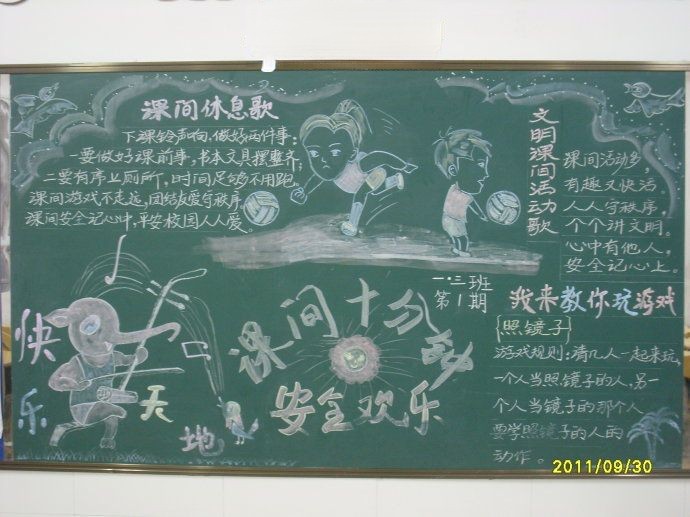 课间休息歌
下课铃声响，做好两件事：
一要做好课前事，书本文具摆整齐；
二要有序上厕所，时间足够不用跑，
课间游戏不走远，团结友爱守秩序，
课间安全记心中，平安校园人人爱。
文明课间活动歌
课间活动多，
有趣又快活。
人人守秩序，
个个讲文明。
心中有他人，
安全记心上。
一·三班
第1期
课间十分钟
安全欢乐
快乐天地
我来教你玩游戏
照镜子
游戏规则：请几人一起来玩，
一个人当照镜子的人，另一
个人当镜子的那个人
要学照镜子的人的
动作。
2011/09/30